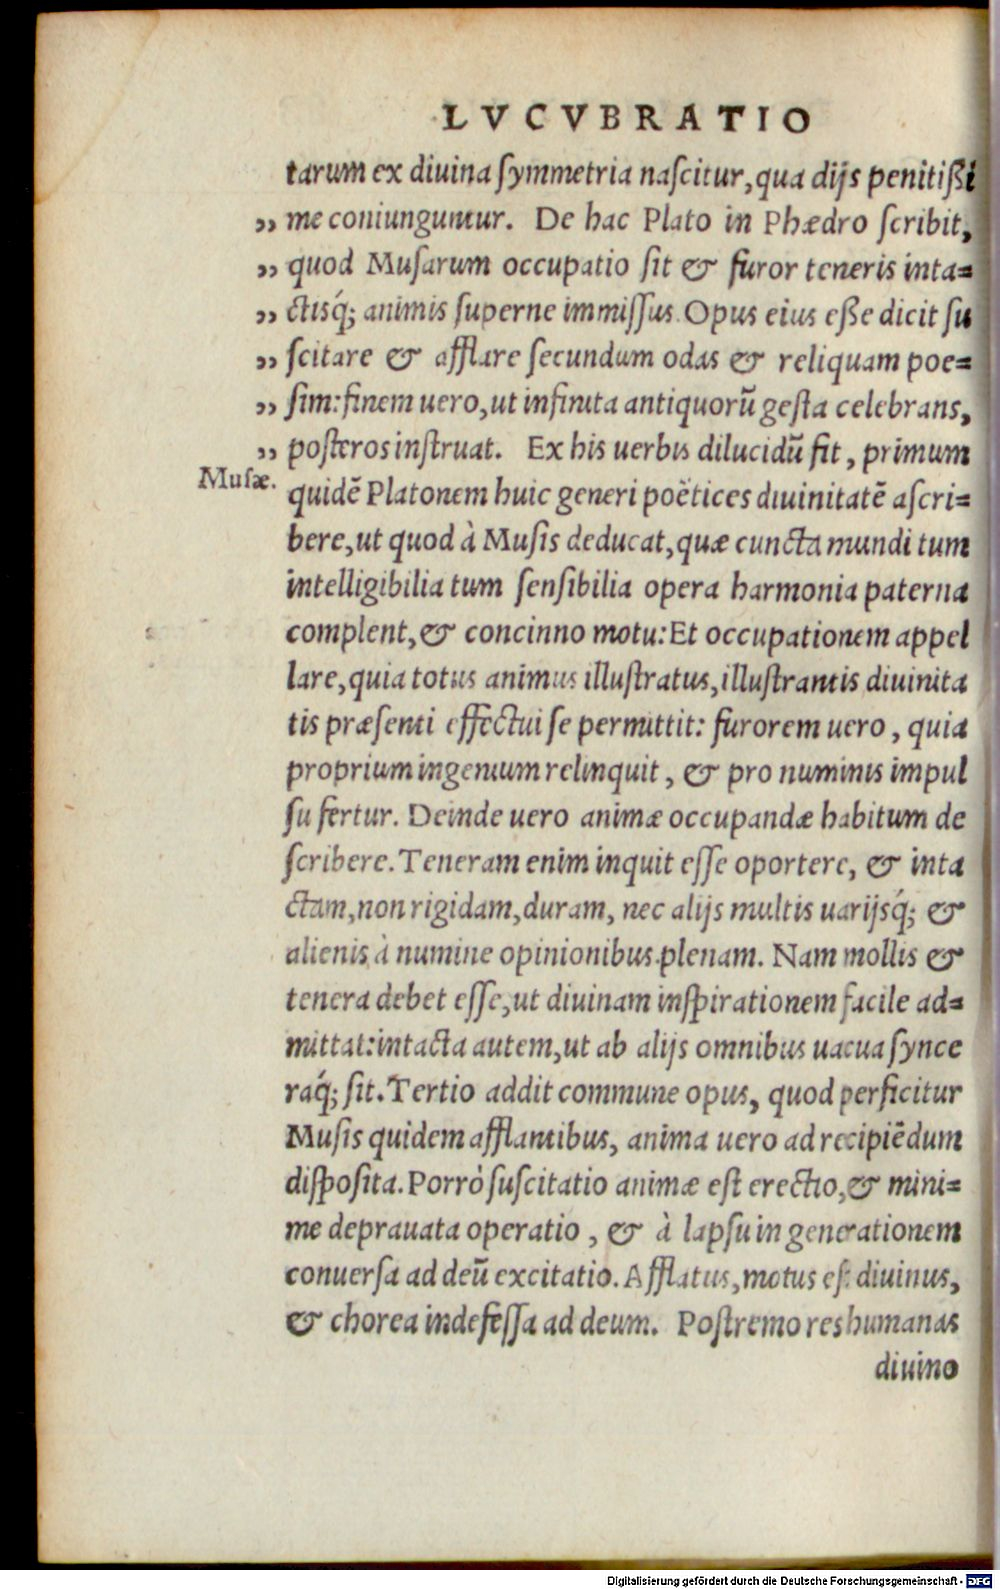 LVCVBRATIO
tarum ex diuina ſymmetria naſcitur, qua dijs penitißi
„ me coniunguntur. De hac Plato in Phædro ſcribit,
„ quod Muſarum occupatio ſit & furor teneris inta=
„ ctisq́; animis ſuperne immiſſus. Opus eius eße dicit ſu
„ ſcitare & afflare ſecundum odas & reliquam poe=
„ ſim: finem uero, ut infinita antiquorũ geſta celebrans,
„ poſteros inſtruat. Ex his uerbis dilucidũ fit, primum
Muſæ.
quidẽ Platonem huic generi poëtices diuinitatẽ aſcri=
bere, ut quod à Muſis deducat, quæ cuncta mundi tum
intelligibilia tum ſenſibilia opera harmonia paterna
complent, & concinno motu: Et occupationem appel
lare, quia totus animus illuſtratus, illuſtrantis diuinita
tis præſenti effectui ſe permittit: furorem uero, quia
proprium ingenium relinquit, & pro numinis impul
ſu fertur. Deinde uero animæ occupandæ habitum de
ſcribere. Teneram enim inquit eſſe oportere, & inta
ctam, non rigidam, duram, nec alijs multis uarijsq́; &
alienis à numine opinionibus plenam. Nam mollis &
tenera debet eſſe, ut diuinam inſpirationem facile ad=
mittat: intacta autem, ut ab alijs omnibus uacua ſynce
raq́; ſit. Tertio addit commune opus, quod perficitur
Muſis quidem afflantibus, anima uero ad recipiẽdum
diſpoſita. Porrò ſuſcitatio animæ eſt erectio, & mini=
me deprauata operatio, & à lapſu in generationem
conuerſa ad deũ excitatio. Afflatus, motus eſt diuinus,
& chorea indefeſſa ad deum. Poſtremo res humanas
diuino
Digitalisierung gefördert durch die Deutsche Forschungsgemeinschaft - DFG